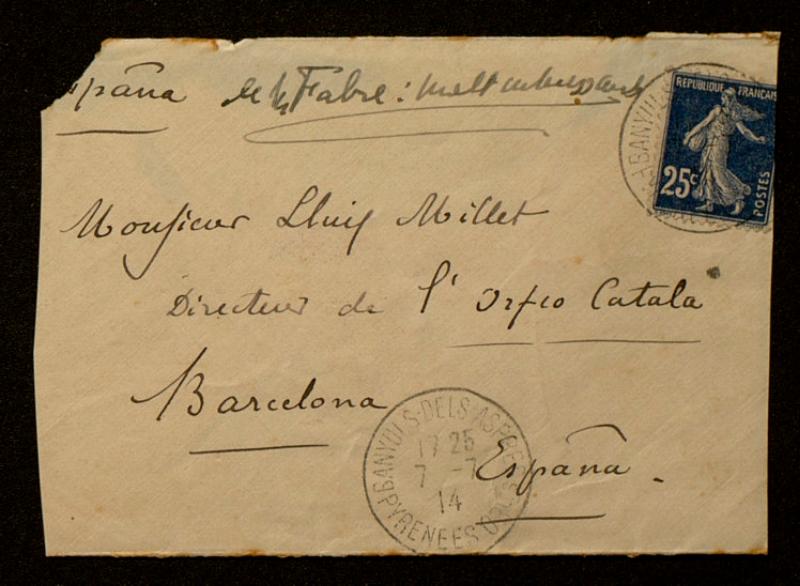 España de Fabre: molt
REPUBLIQUE FRANCAISE
25c POSTES
Monsieur Lluis Millet
Directeur de l'Orfeo Catala
Barcelona
España.
BANYULS-DELS-ASPRES
17 25
7 -7
14
PYRENEES